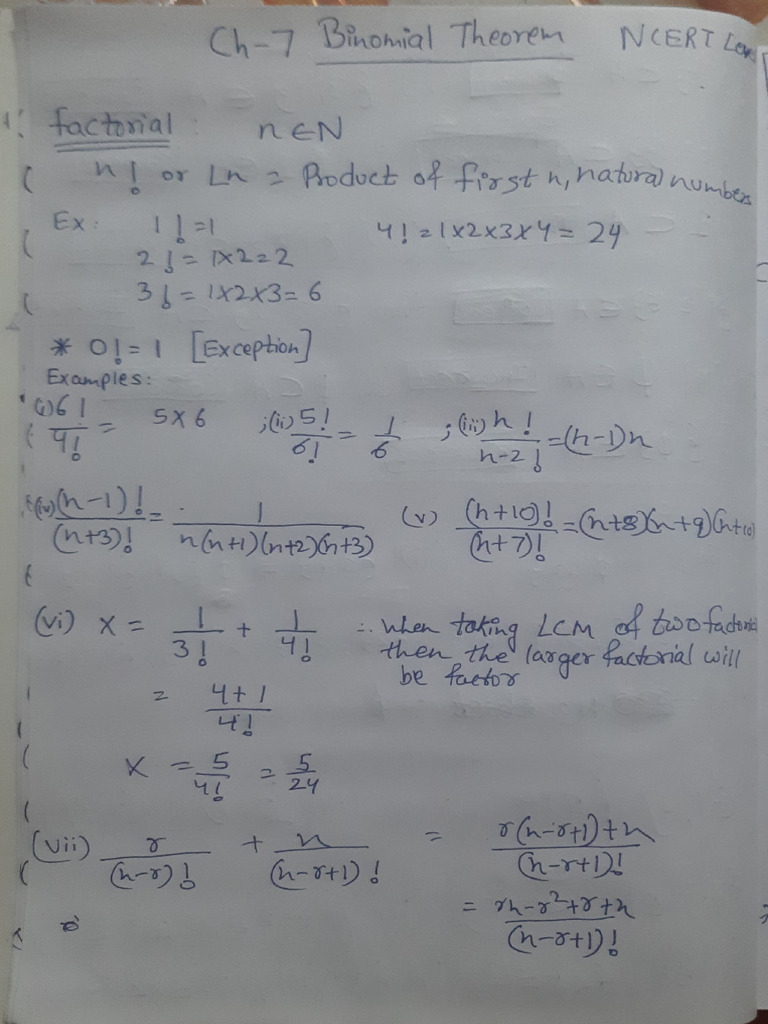 Ch-7 Binomial Theorem NCERT
factorial : n ∈ N
n! or Ln = Product of first n, natural numbers
Ex: 1! = 1 4! = 1x2x3x4 = 24
2! = 1x2 = 2
3! = 1x2x3 = 6
* 0! = 1 [Exception]
Examples:
(i) 6!/4! = 5x6 ; (ii) 5!/6! = 1/6 ; (iii) n!/n-2! = (n-1)n
(iv) (n-1)!/(n+3)! = 1/n(n+1)(n+2)(n+3) (v) (n+10)!/(n+7)! = (n+8)(n+9)(n+10)
(vi) x = 1/3! + 1/4! ∴ When taking LCM of two factorial
then the larger factorial will
be factor
= 4+1/4!
x = 5/4! = 5/24
(vii) r/(n-r)! + n/(n-r+1)! = r(n-r+1)+n/(n-r+1)!
= rn-r²+r+n/(n-r+1)!